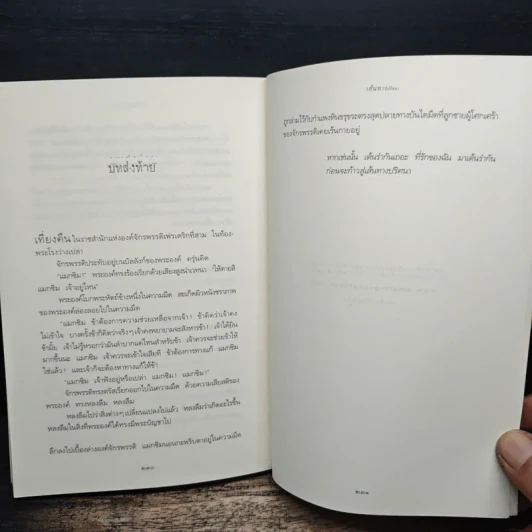 บทส่งท้าย
เที่ยงคืน ในราชสำนักแห่งองค์จักรพรรดิเฟรเดริกที่สาม ในท้อง-
พระโรงว่างเปล่า
จักรพรรดิประทับอยู่บนบัลลังก์ของพระองค์ ครุ่นคิด
"แมกซิม" พระองค์ทรงร้องเรียกด้วยเสียงสูงน่าเวทนา "ให้ตายสิ
แมกซิม เจ้าอยู่ไหน"
พระองค์โบกพระหัตถ์ข้างหนึ่งในความมืด สะเก็ดผิวหนังชราภาพ
ของพระองค์ล่องลอยไปในความมืด
"แมกซิม ข้าต้องการความช่วยเหลือจากเจ้า! ข้าคิดว่าเจ้าคง
ไม่เข้าใจ บางครั้งข้าก็คิดว่าจริงๆ เจ้าคงพยายามจะสังหารข้า! เจ้าได้ยิน
ข้ามั้ย เจ้าไม่รู้หรอกว่ามันลำบากแค่ไหนสำหรับข้า เจ้าควรจะช่วยข้าให้
มากขึ้นนะ แมกซิม เจ้าควรจะเข้าใจเสียที ข้าต้องการทางแก้ แมกซิม
ใช่แล้ว! และเจ้าก็จะต้องหาทางแก้ให้ข้า
"แมกซิม เจ้าฟังอยู่หรือเปล่า แมกซิม! แมกซิม!"
จักรพรรดิทรงตวัดเรียกออกไปในความมืด ด้วยความเสียสติของ
พระองค์ ทรงหลงลืม หลงลืม
หลงลืมไปว่าสิ่งต่างๆ เปลี่ยนแปลงไปแล้ว หลงลืมว่าเกิดอะไรขึ้น
หลงลืมในสิ่งที่พระองค์ได้ทรงมีพระบัญชาไป
ลึกลงไปเบื้องล่างองค์จักรพรรดิ แมกซิมนอนกะพริบตาอยู่ในความมืด
ถูกล่ามไว้กับกำแพงหินขรุขระตรงสุดปลายทางบันไดมืดที่ลูกชายผู้โศกเศร้า
ของจักรพรรดิเคยเร้นกายอยู่
หากเช่นนั้น เต้นรำกันเถอะ ที่รักของฉัน มาเต้นรำกัน
ก่อนจะก้าวสู่เส้นทางปริศนา